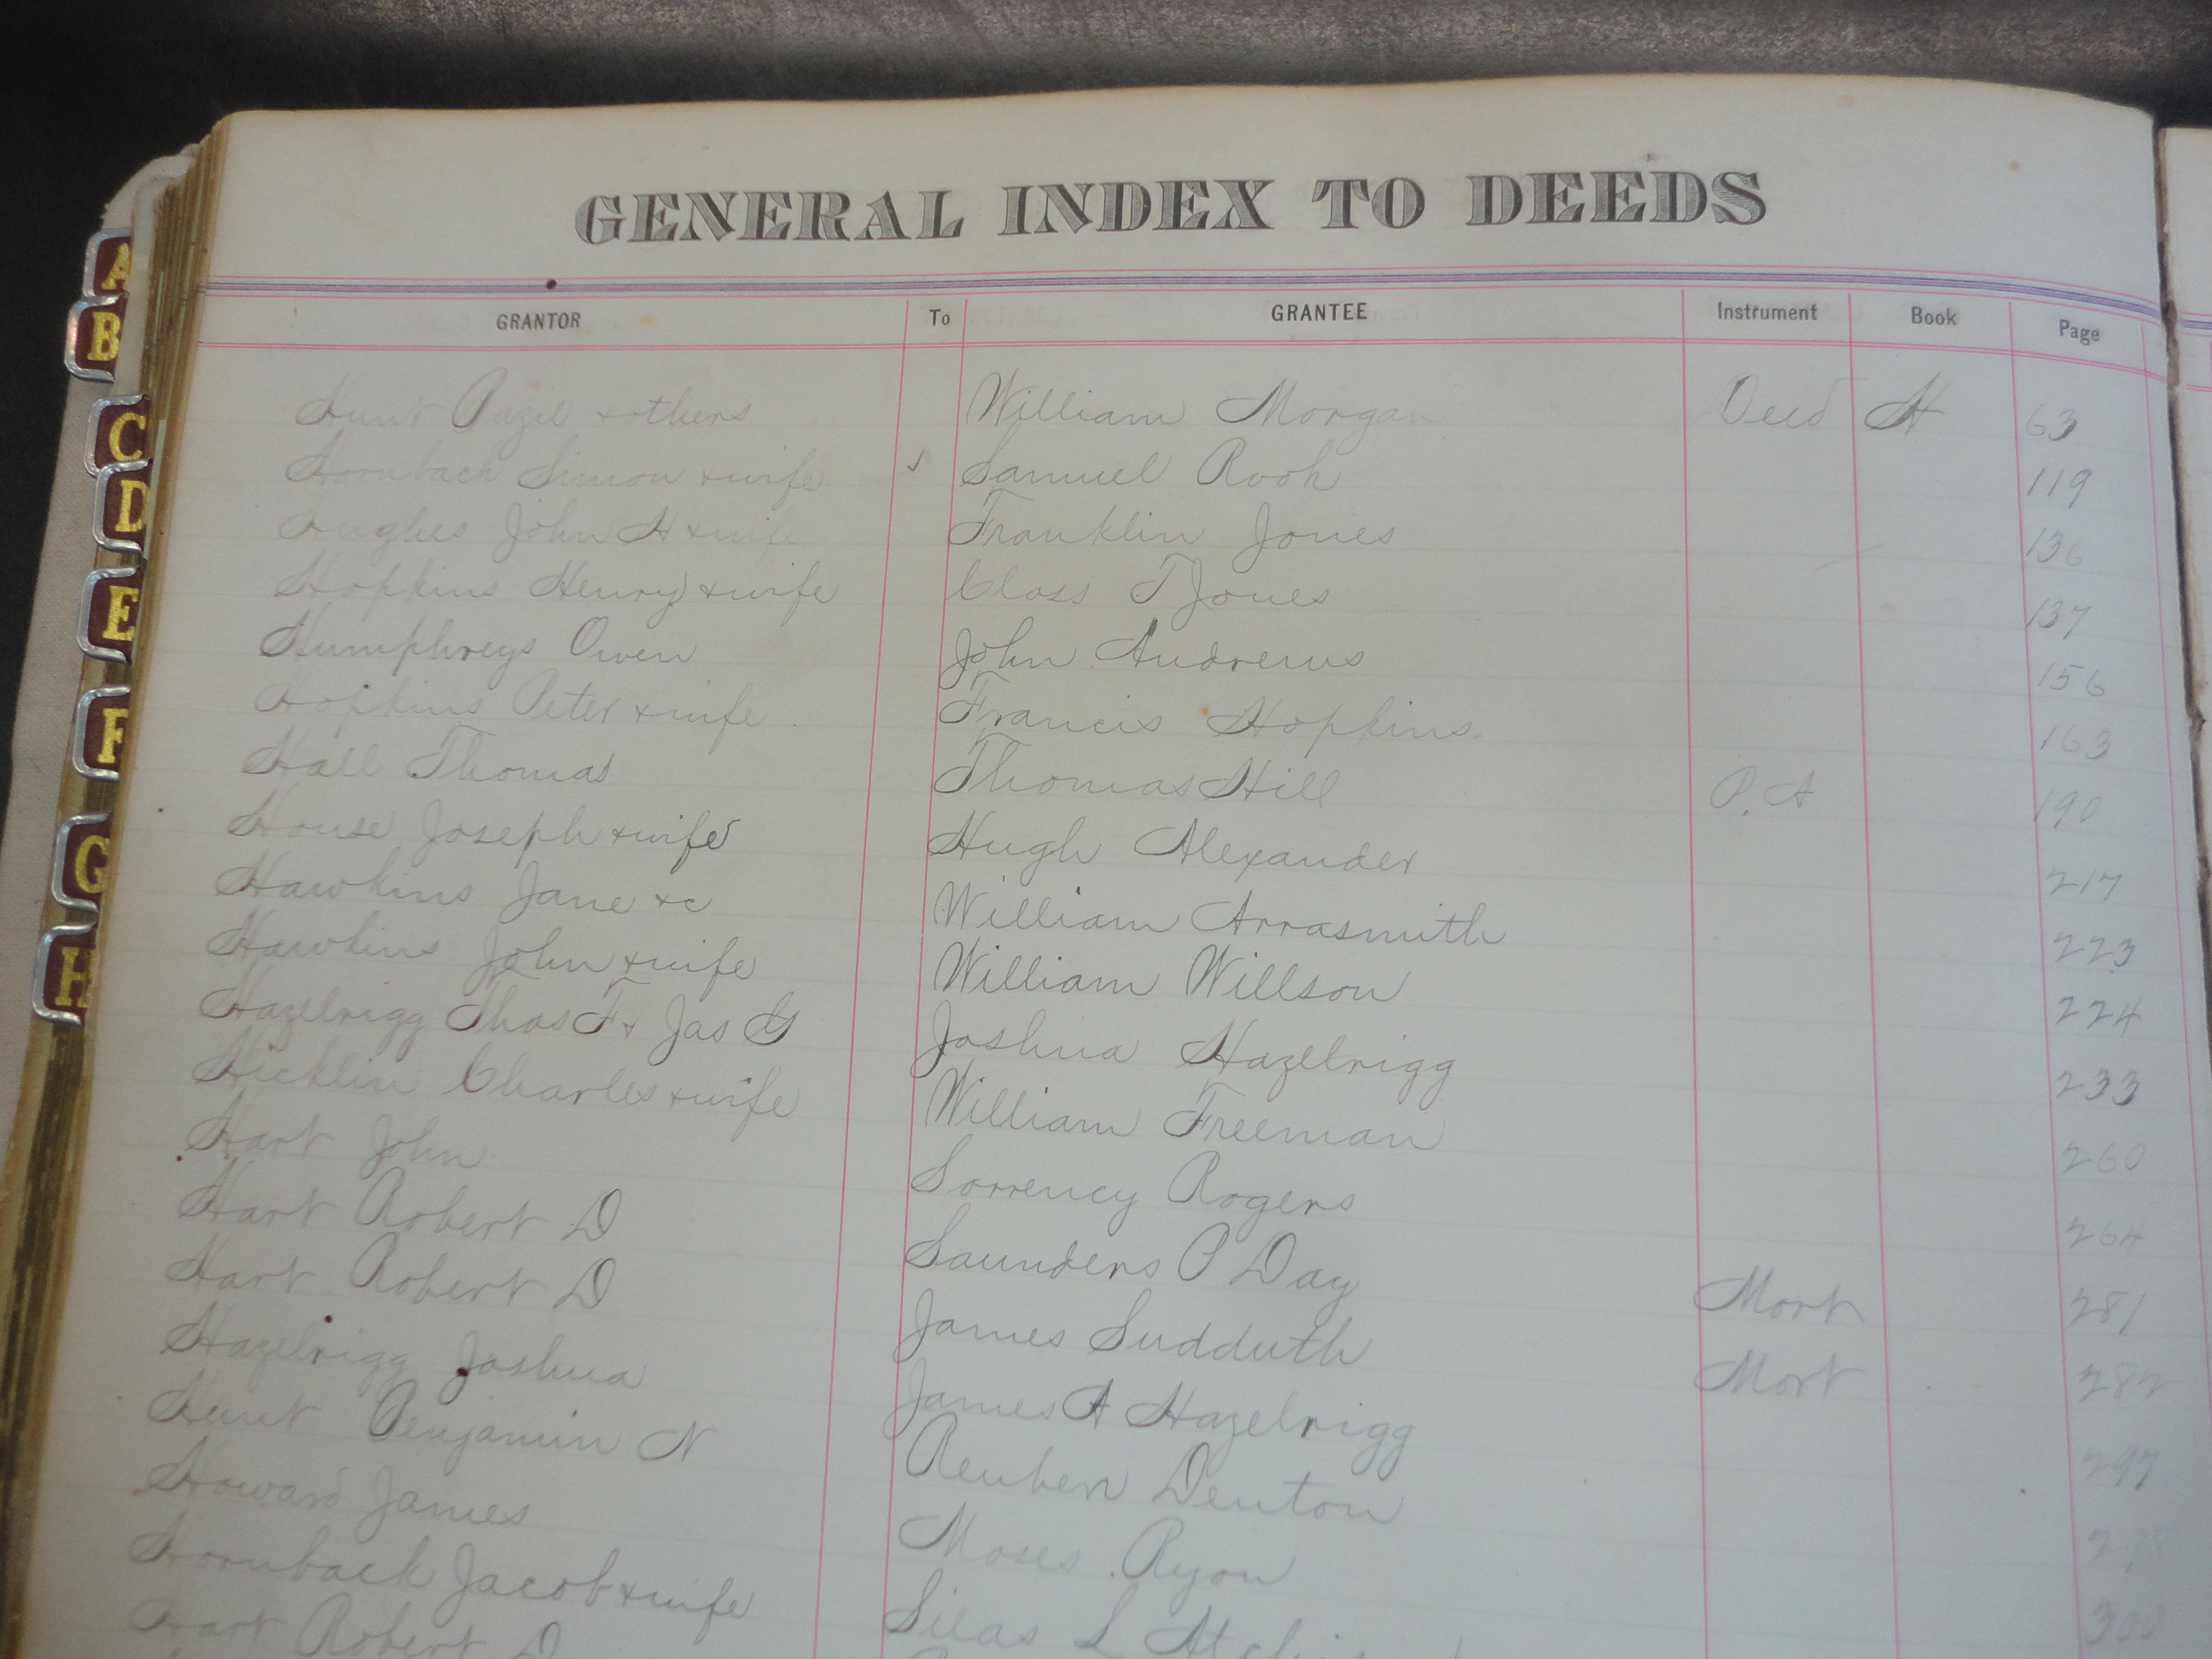 A
B
C
D
E
F
G
H
GENERAL INDEX TO DEEDS
GRANTOR To GRANTEE Instrument Book Page
Hunt Bazil & others William Morgan Deed H 63
Hornback Simon & wife ✓ Samuel Rook 119
Hughes John H & wife Franklin Jones 136
Hopkins Henry & wife Closs T Jones 137
Humphreys Owen John Andrews 156
Hopkins Peter & wife Francis Hopkins 163
Hall Thomas Thomas Hill P. A 190
House Joseph & wife Hugh Alexander 217
Hawkins Jane &c William Arrasmith 223
Hawkins John & wife William Willson 224
Hazelrigg Thos F & Jas G Joshua Hazelrigg 233
Hicklin Charles & wife William Freeman 260
Hart John Sorrency Rogers 264
Hart Robert D Saunders P Day Mort 281
Hart Robert D James Sudduth Mort 282
Hazelrigg Joshua James A Hazelrigg 297
Hunt Benjamin N Reuben Denton 298
Howard James Moses Ryon 300
Hornback Jacob & wife Silas L
Hart Robert D